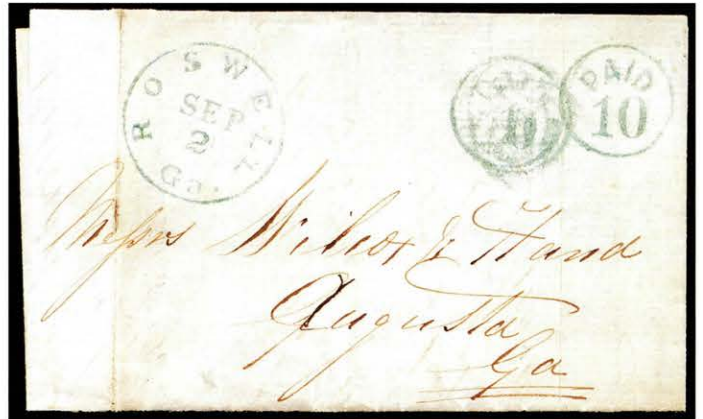 ROSWELL
SEP
2
Ga.
PAID
10
10
Messrs Wilcox & Hand
Augusta
Ga